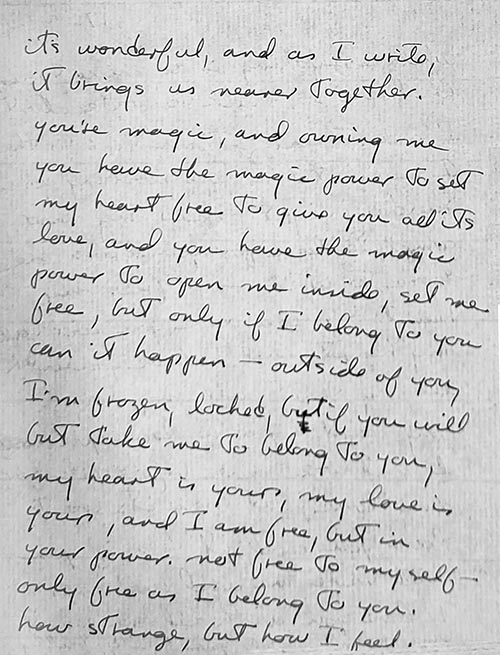 it's wonderful, and as I write,
it brings us nearer together.
you're magic, and owning me
you have the magic power to set
my heart free to give you all its
love, and you have the magic
power to open me inside, set me
free, but only if I belong to you
can it happen — outside of you,
I'm frozen, locked, but if you will
but take me to belong to you,
my heart is yours, my love is
yours, and I am free, but in
your power. not free to myself —
only free as I belong to you.
how strange, but how I feel.